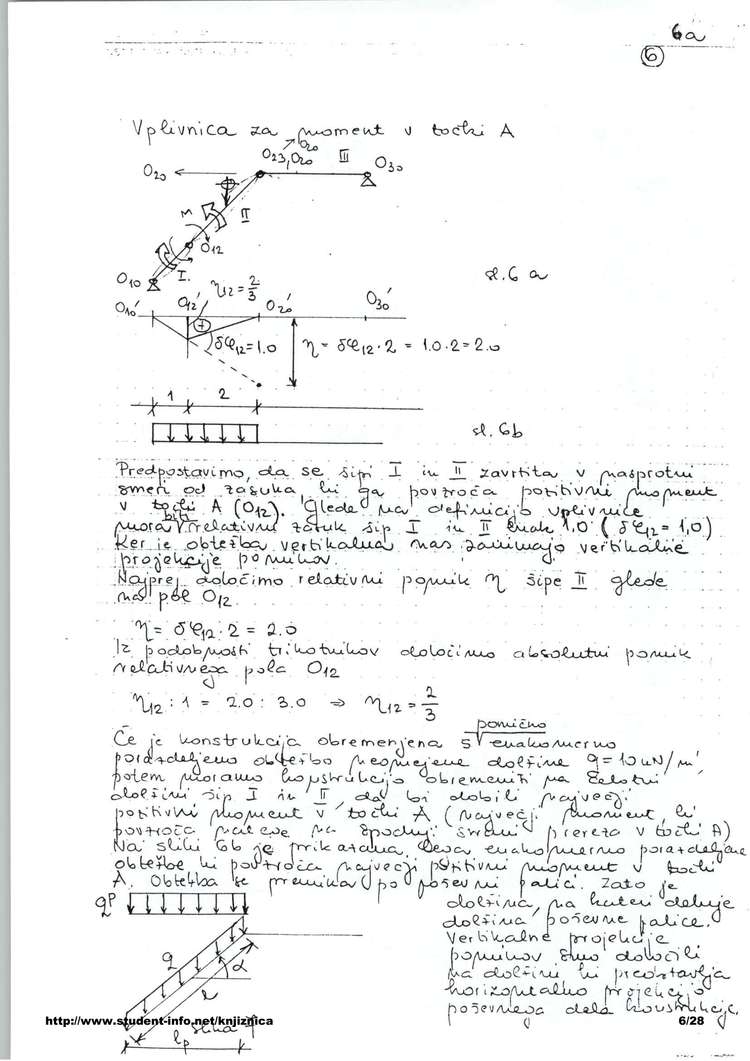 6a
6
Vplivnica za moment v točki A
O20
O23, O20 III O30
O20
M II
O12
O10 I.
sl. 6 a
η12 = 2/3
O10' O12' O20' O30'
+
δφ12 = 1.0 η = δφ12 · 2 = 1.0 · 2 = 2.0
1 2
sl. 6b
Predpostavimo, da se šipi I in II zavrtita v nasprotni
smeri od zasuka, ki ga povzroča pozitivni moment
v točki A (O12). Glede na definicijo vplivnice
mora biti relativni zasuk šip I in II enak 1.0 (δφ12 = 1,0)
Ker je obtežba vertikalna nas zanimajo vertikalne
projekcije pomikov.
Najprej določimo relativni pomik η šipe II glede
na pol O12.
η = δφ12 · 2 = 2.0
Iz podobnosti trikotnikov določimo absolutni pomik
relativnega pola O12
η12 : 1 = 2.0 : 3.0 ⇒ η12 = 2/3
Če je konstrukcija obremenjena s pomično enakomerno
porazdeljeno obtežbo neomejene dolžine q = 10 kN/m',
potem moramo konstrukcijo obremeniti na celotni
dolžini šip I in II, da bi dobili največji
pozitivni moment v točki A (največji moment, ki
povzroča natege na spodnji strani prereza v točki A)
Na sliki 6b je prikazana lega enakomerno porazdeljene
obtežbe ki povzroča največji pozitivni moment v točki
A. Obtežba se premika po poševni palici. Zato je
dolžina, na kateri deluje
dolžina poševne palice.
Vertikalne projekcije
pomikov smo določili
na dolžini ki predstavlja
horizontalno projekcijo
poševnega dela konstrukcije.
qp
q
α
l
lp
slika
http://www.student-info.net/knjiznica
6/28